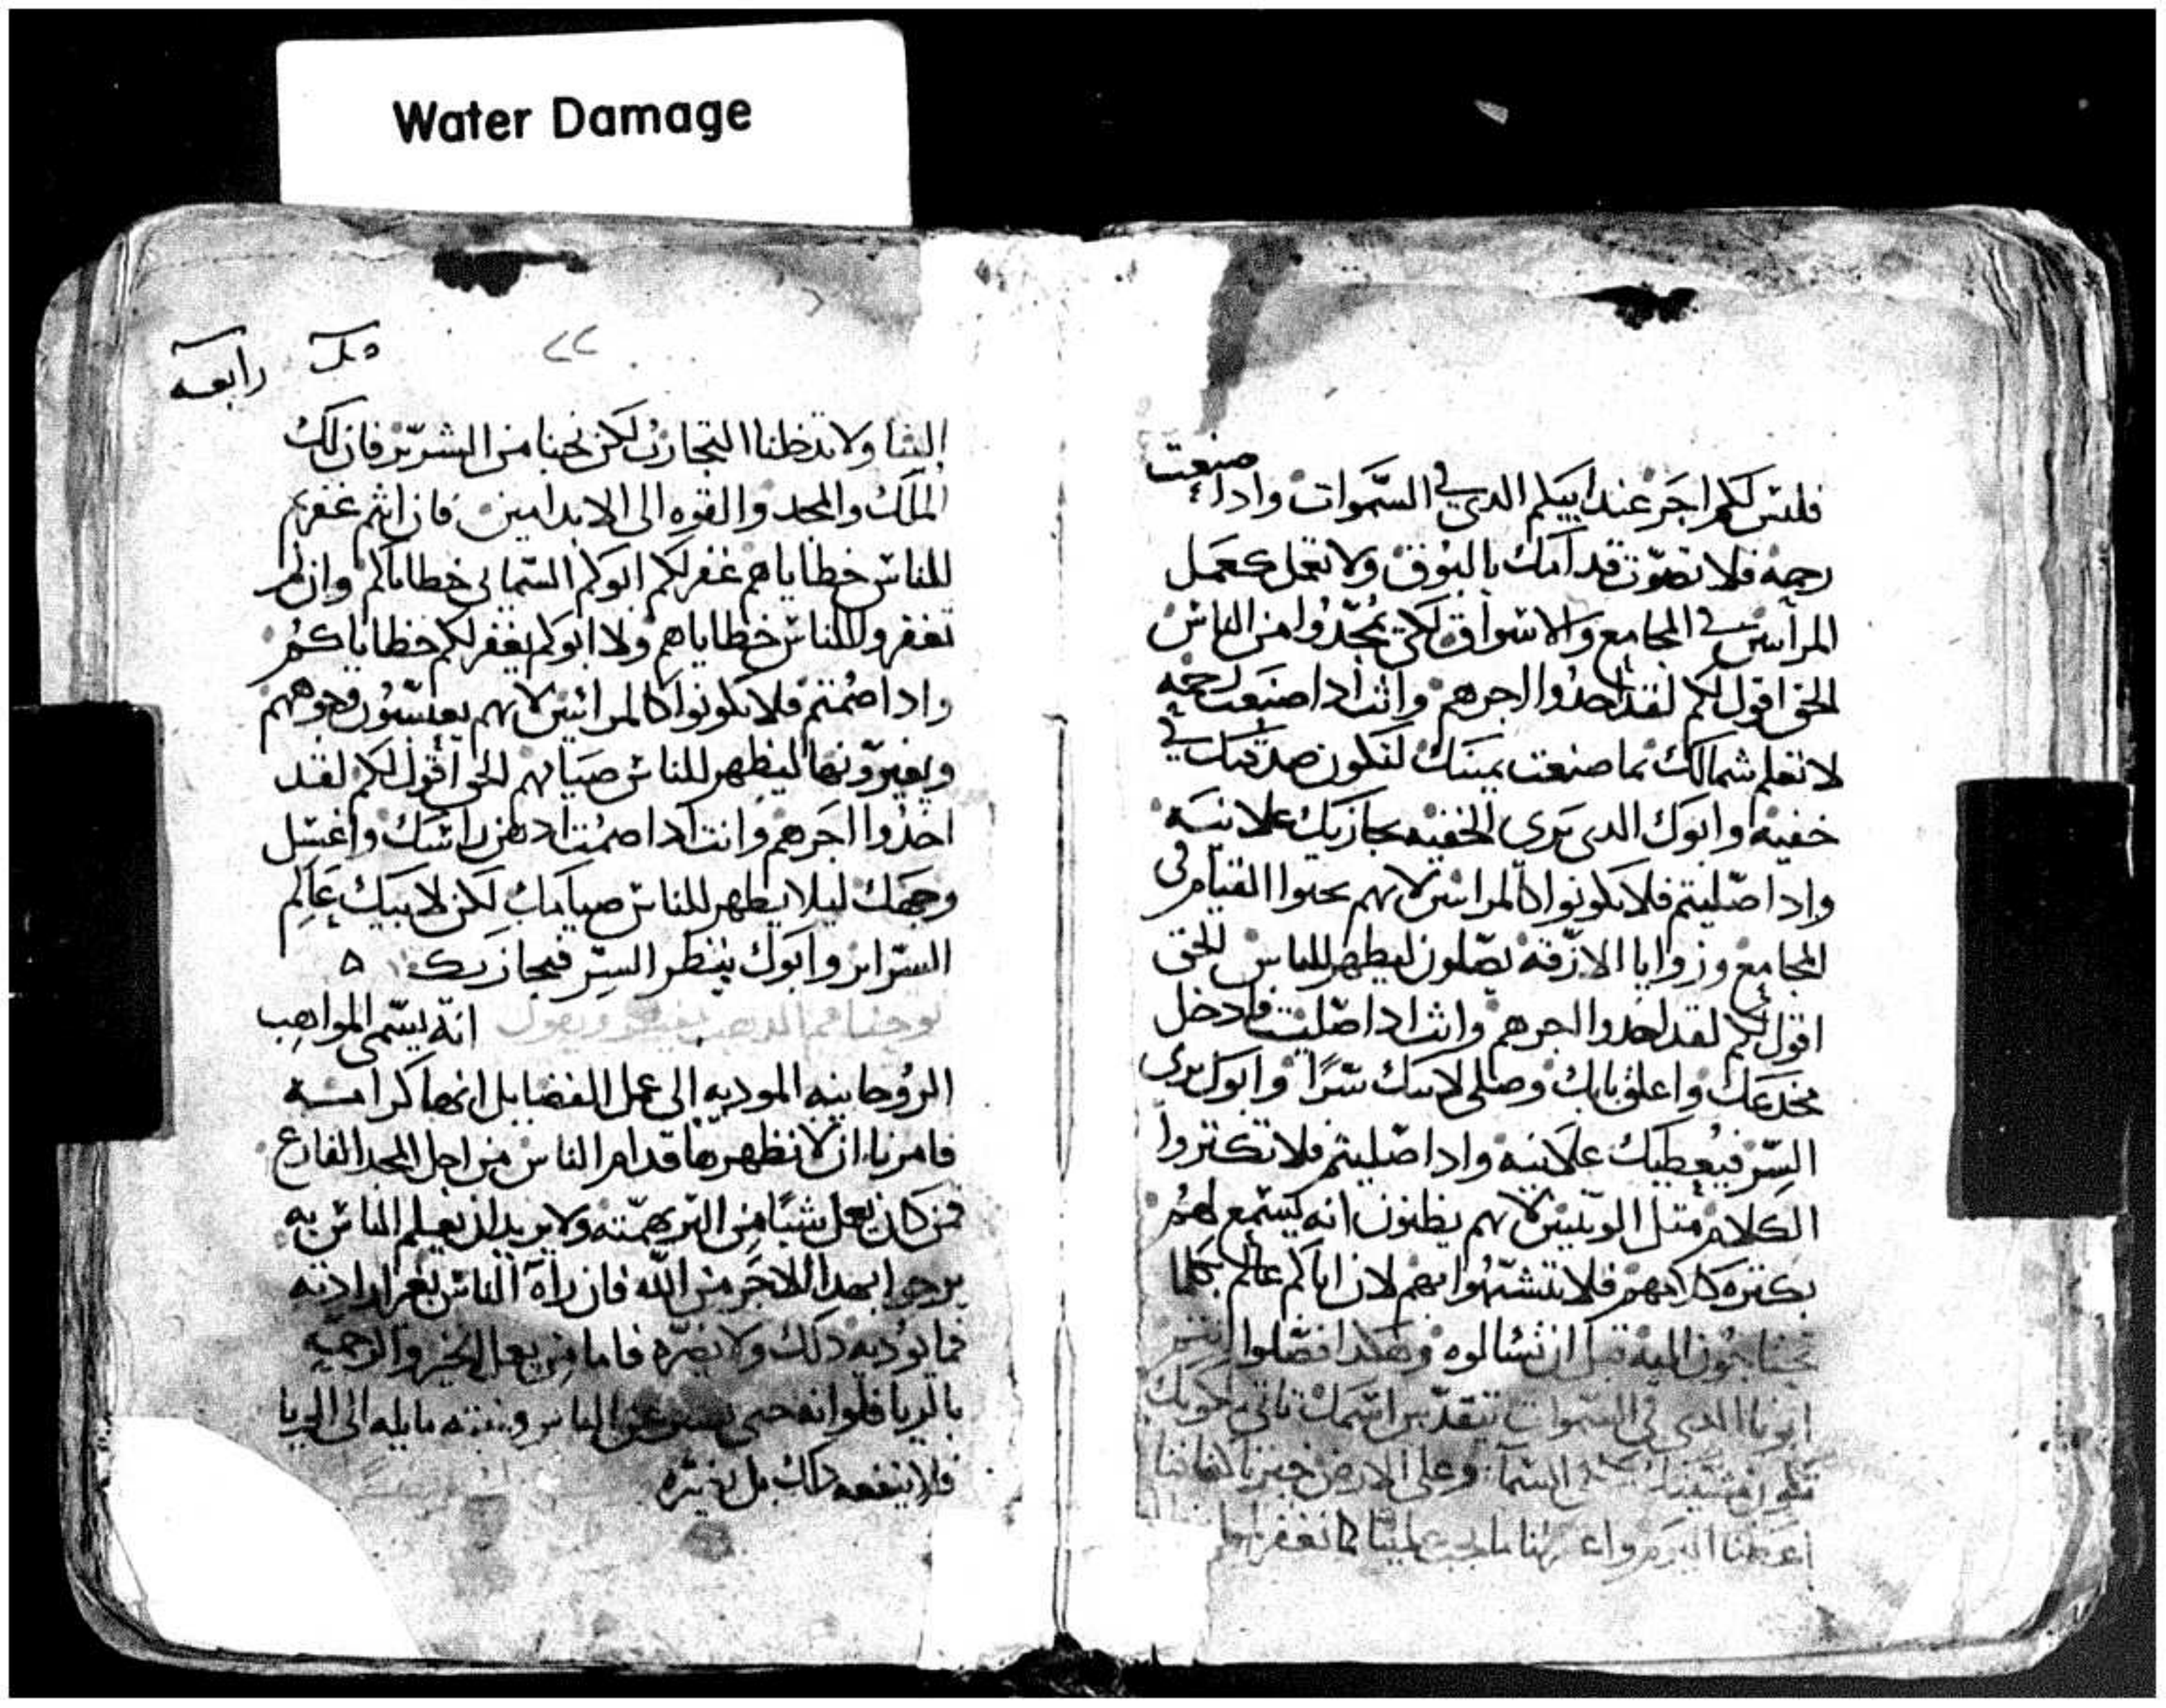 Water Damage
فليس لكم اجر عند ابيكم الدي في السموات وادا صنعت
رحمه فلا تصوت قدامك بالبوق ولا تعمل كعمل
المرايين في المجامع والاسواق لكي يمجدوا من الناس
الحق اقول لكم لقد اخدوا اجرهم وانت ادا صنعت رحمه
لا تعلم شمالك بما صنعت يمينك لتكون صدقتك في
خفيه وابوك الدي يرى الخفيه يجازيك علانيه
وادا صليتم فلا تكونوا كالمرايين لانهم يحبوا القيام في
المجامع وزوايا الازقه يصلون ليظهر للناس الحق
اقول لكم لقد اخدوا اجرهم وانت ادا صليت فادخل
مخدعك واغلق بابك وصلي لابيك سرا وابوك يرى
السر فيعطيك علانيه وادا صليتم فلا تكتروا
الكلام متل الوتنيين لانهم يظنون انه يستمع لهم
بكتره كلامهم فلا تتشبهوا بهم لان اباكم عالم بكلما
تحتاجون اليه قبل ان تسالوه وهكدا فصلوا انتم
ابونا الدي في السموات يتقدس اسمك تاتي ملكوتك
تكون مشيتك في السما وعلى الارض خبزنا كفافنا
اعطنا اليوم ما يجب علينا كما نغفر لمن
٢٢
رابعه
الينا ولا تدخلنا التجارب لكن نجنا من الشرير فان لك
الملك والمجد والقوه الى الابد امين فان انتم غفرتم
للناس خطاياهم غفر لكم ابوكم السمايي خطاياكم وان لم
تغفروا للناس خطاياهم ولا ابوكم يغفر لكم خطاياكم
وادا صمتم فلا تكونوا كالمرائيين لانهم يعبسون وجوههم
ويغيرونها ليظهر للناس صيامهم الحق اقول لكم لقد
اخدوا اجرهم وانت ادا صمت ادهن راسك واغسل
وجهك ليلا يظهر للناس صيامك لكن لابيك عالم
السراير وابوك ينظر السر فيجازيك ه
يوحنا فم الدهب يفسر ويقول انه يسمي المواهب
الروحانيه الموديه الى عمل الفضايل انها كرامه
فامرنا ان لا نظهرها قدام الناس من اجل المجد الفارغ
فمن كان يعمل شيا من البر بهمته ولا يريد ان يعلم الناس به
يرجوا بهدا الاجر من الله فان راه الناس بغير ارادته
فما يوديه دلك ولا يضره فاما من يعمل الخير والرحمه
بالريا فلو انه عن الناس ونيته مايله الى الريا
فلا ينفعه دلك بل يضره